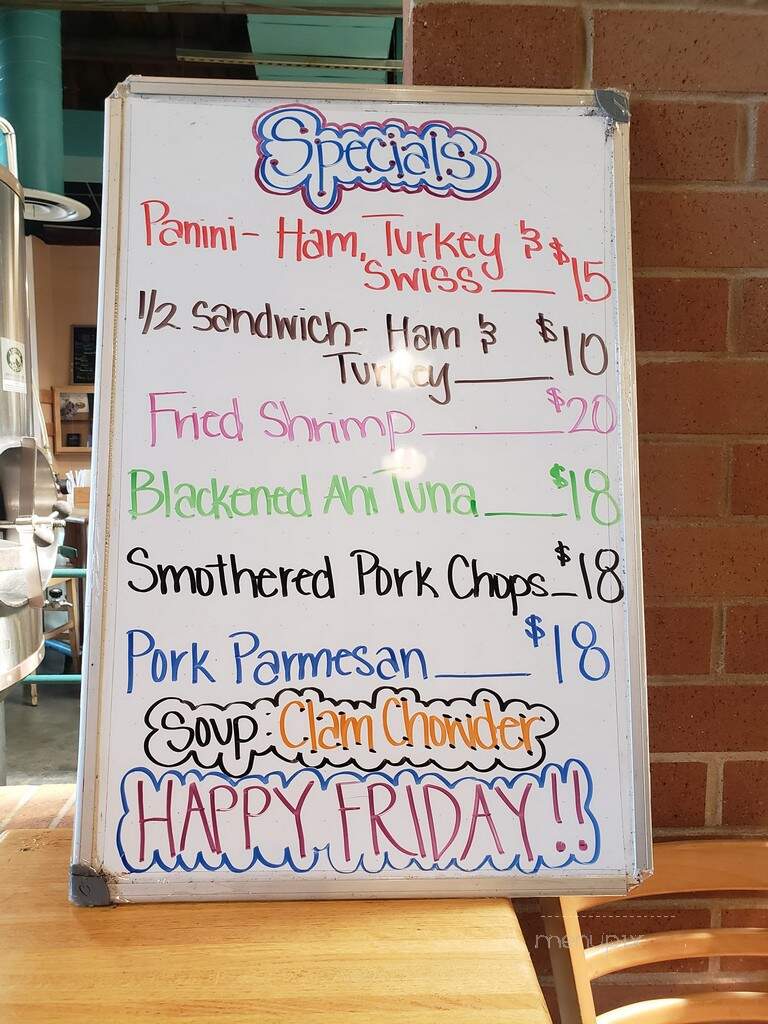 Specials
Panini- Ham, Turkey & $15
Swiss
1/2 Sandwich- Ham & $10
Turkey
Fried Shrimp $20
Blackened Ahi Tuna $18
Smothered Pork Chops $18
Pork Parmesan $18
Soup: Clam Chowder
HAPPY FRIDAY!!
menupix